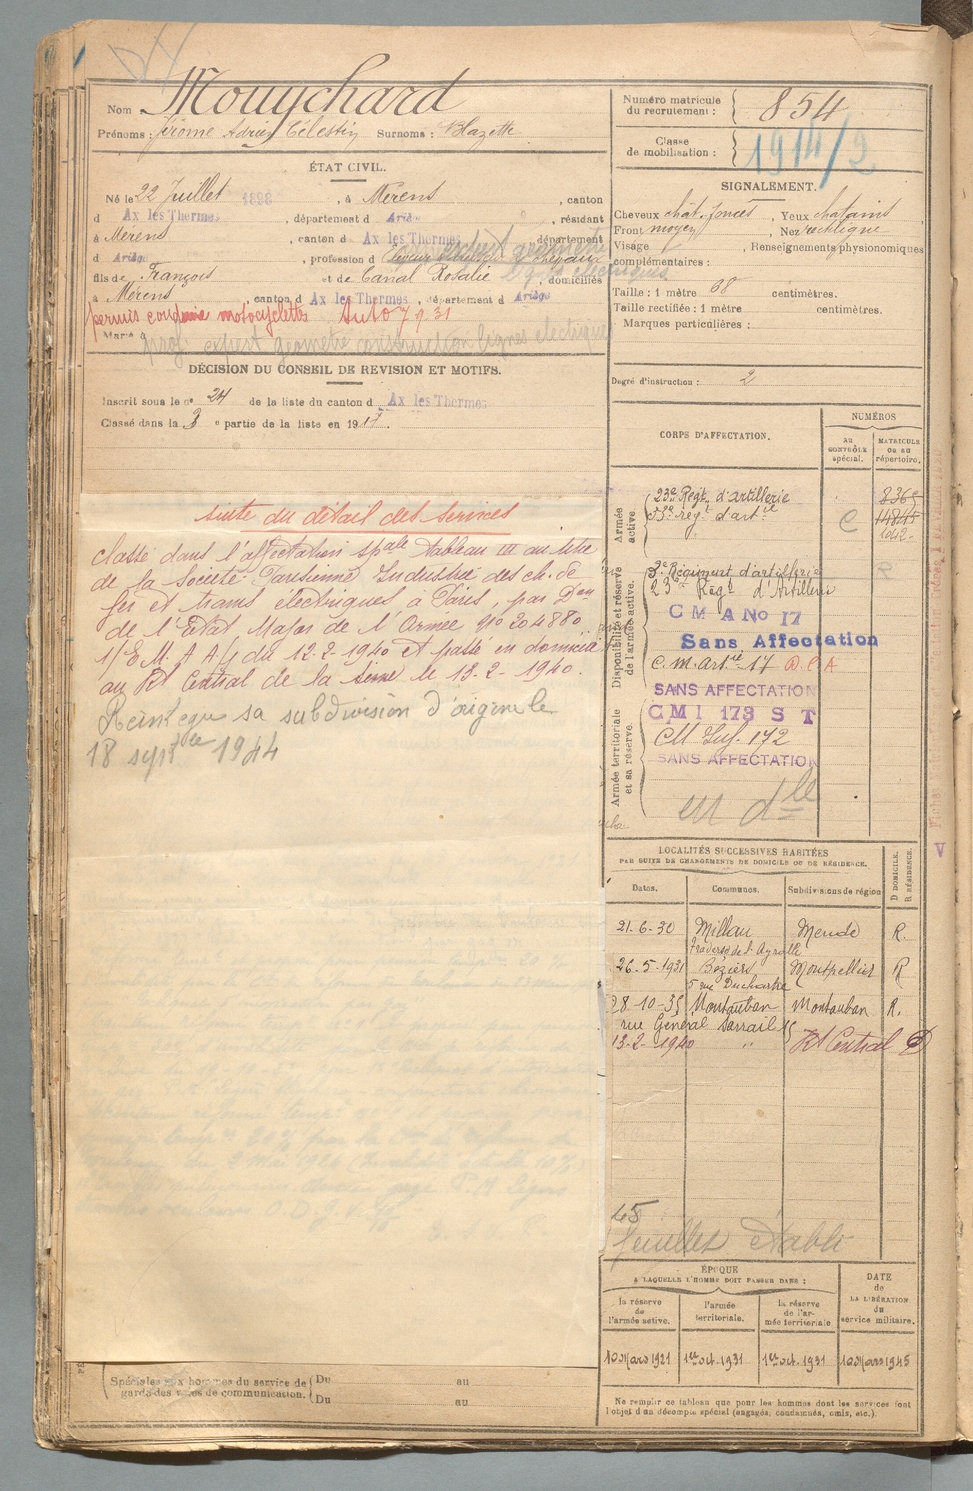 Nom Mouychard
Prénoms : Jérôme Adrien Célestin Surnoms : Blazette
ÉTAT CIVIL.
Né le 22 Juillet 1898, à Mérens, canton
d Ax les Thermes, département d Ariège, résidant
à Mérens, canton d Ax les Thermes, département
d Ariège, profession d
fils de François et de Canal Rosalie, domiciliés
à Mérens, canton d Ax les Thermes, département d Ariège
permis conduire motocyclette Auto 7.9.31
Marié à
prof. expert géomètre construction lignes électriques
DÉCISION DU CONSEIL DE REVISION ET MOTIFS.
Inscrit sous le n° 24 de la liste du canton d Ax les Thermes
Classé dans la 3 e partie de la liste en 1917.
suite du détail des services
Classé dans l'affectation spale Tableau III au titre
de la Société Parisienne Industrie des ch. de
fer et trams électriques à Paris, par Don
de l'Etat Major de l'Armée n° 204880
1/E.M.A.A.4 du 12-2-1940 et passé en domicile
au Rt Central de la Seine le 13-2-1940.
sa subdivision d'origine le
18 septbre 1944
Spéciales aux hommes du service de garde des voies de communication. Du au
Du au
Numéro matricule du recrutement : 854
Classe de mobilisation : 1914/2
SIGNALEMENT.
Cheveux chât. foncés, Yeux chatains
Front moyen, Nez rectiligne
Visage , Renseignements physionomiques
complémentaires :
Taille : 1 mètre 68 centimètres.
Taille rectifiée : 1 mètre centimètres.
Marques particulières :
Degré d'instruction : 2
CORPS D'AFFECTATION.
NUMÉROS
AU CONTRÔLE spécial.
MATRICULE OU AU répertoire.
Armée active
23e Régt d'artillerie 8365
régt d'artie C 14845
1042
Disponibilité et réserve de l'armée active.
3e Régiment d'artillerie
23e Régt d'Artillerie
C M A No 17
Sans Affectation
C.M. Artie 17 D.C.A
SANS AFFECTATION
C M I 173 S T
Armée territoriale et sa réserve.
CM Inf. 172
SANS AFFECTATION
en dle
LOCALITÉS SUCCESSIVES HABITÉES
PAR SUITE DE CHANGEMENTS DE DOMICILE OU DE RÉSIDENCE.
Dates. Communes. Subdivisions de région D DOMICILE. R RÉSIDENCE.
21-6-30 Millau Mende R.
Traverse de l'Ayrolle
26-5-1931 Béziers Montpellier R
5 rue
28-10-35 Montauban Montauban R.
rue Général Sarrail 15
13-2-1940 " Rt Central D
45
feuillet établi
ÉPOQUE
A LAQUELLE L'HOMME DOIT PASSER DANS :
DATE de LA LIBÉRATION du service militaire.
la réserve de l'armée active. l'armée territoriale. la réserve de l'armée territoriale.
10 Mars 1921 1er oct. 1931 1er oct. 1931 10 Mars 1945
Ne remplir ce tableau que pour les hommes dont les services font
l'objet d'un décompte spécial (engagés, condamnés, omis, etc.).